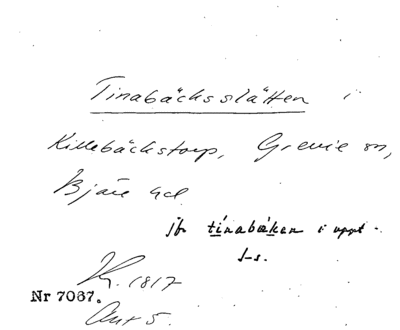 Tinabäcksslätten i
Killebäckstorp, Grevie sn,
Bjäre hd
jfr tinabäken i uppt.
J-s.
1817
Nr 7067.
Ant 5.